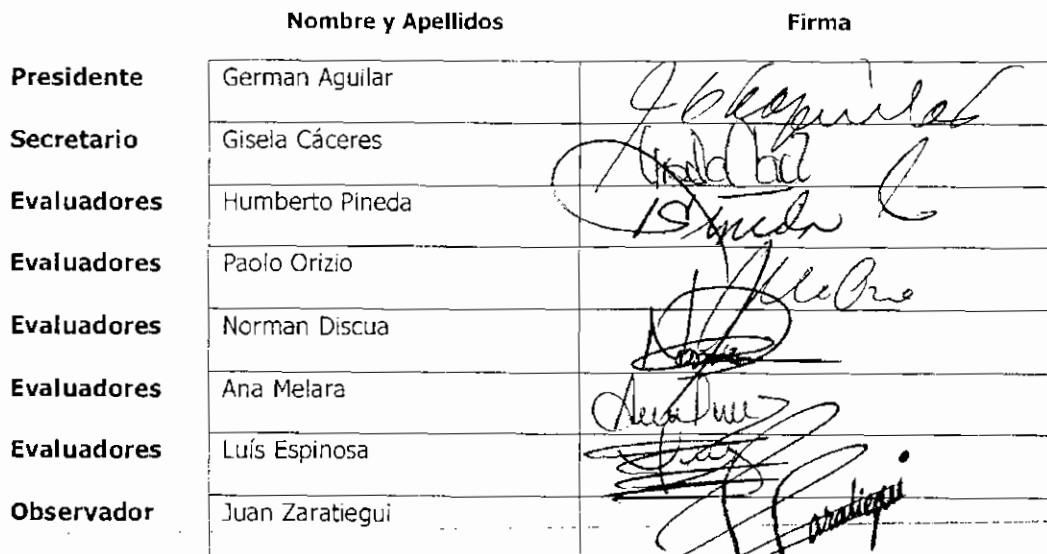 Nombre y Apellidos Firma
Presidente German Aguilar
Secretario Gisela Cáceres
Evaluadores Humberto Pineda
Evaluadores Paolo Orizio
Evaluadores Norman Discua
Evaluadores Ana Melara
Evaluadores Luís Espinosa
Observador Juan Zaratiegui